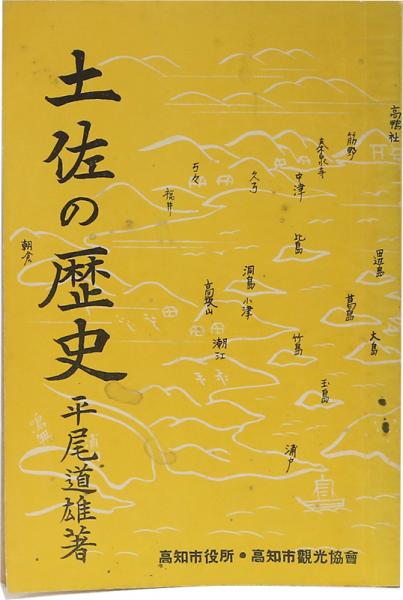 土佐の歴史
平尾道雄著
高鴨社
筋野
秦泉寺
中津
久万
万々
福井
朝倉
比島
田辺島
洞島
小津
高坂山
葛島
大島
潮江
竹島
玉島
浦戸
鳴無
浦
高知市役所・高知市観光協會